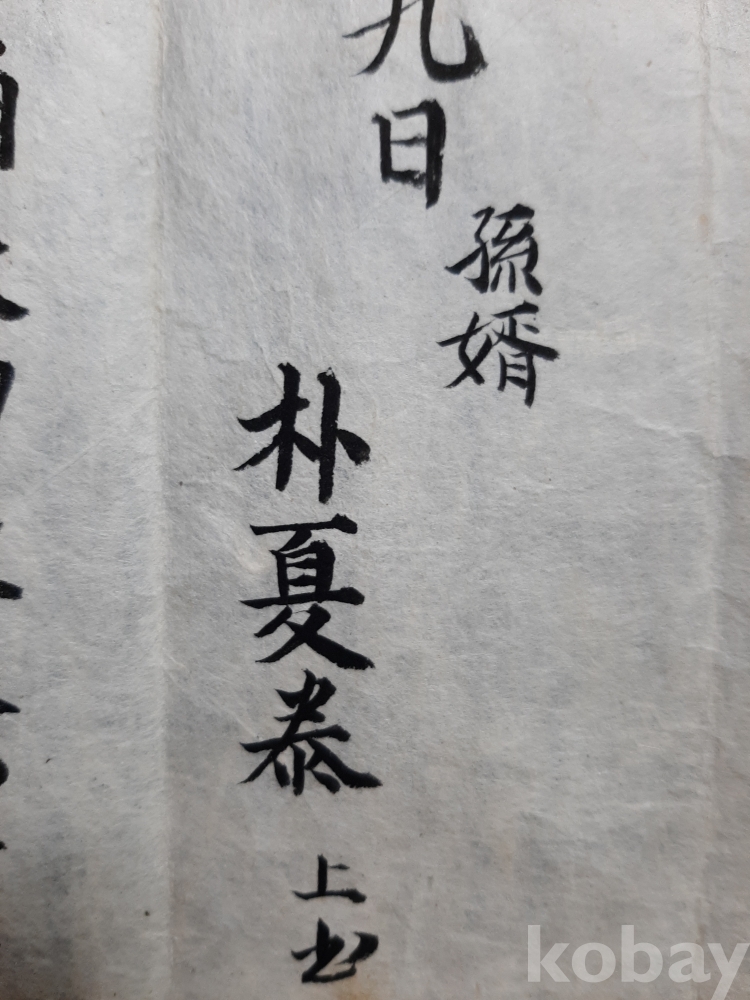 九日
孫婿
朴夏泰
上書
kobay